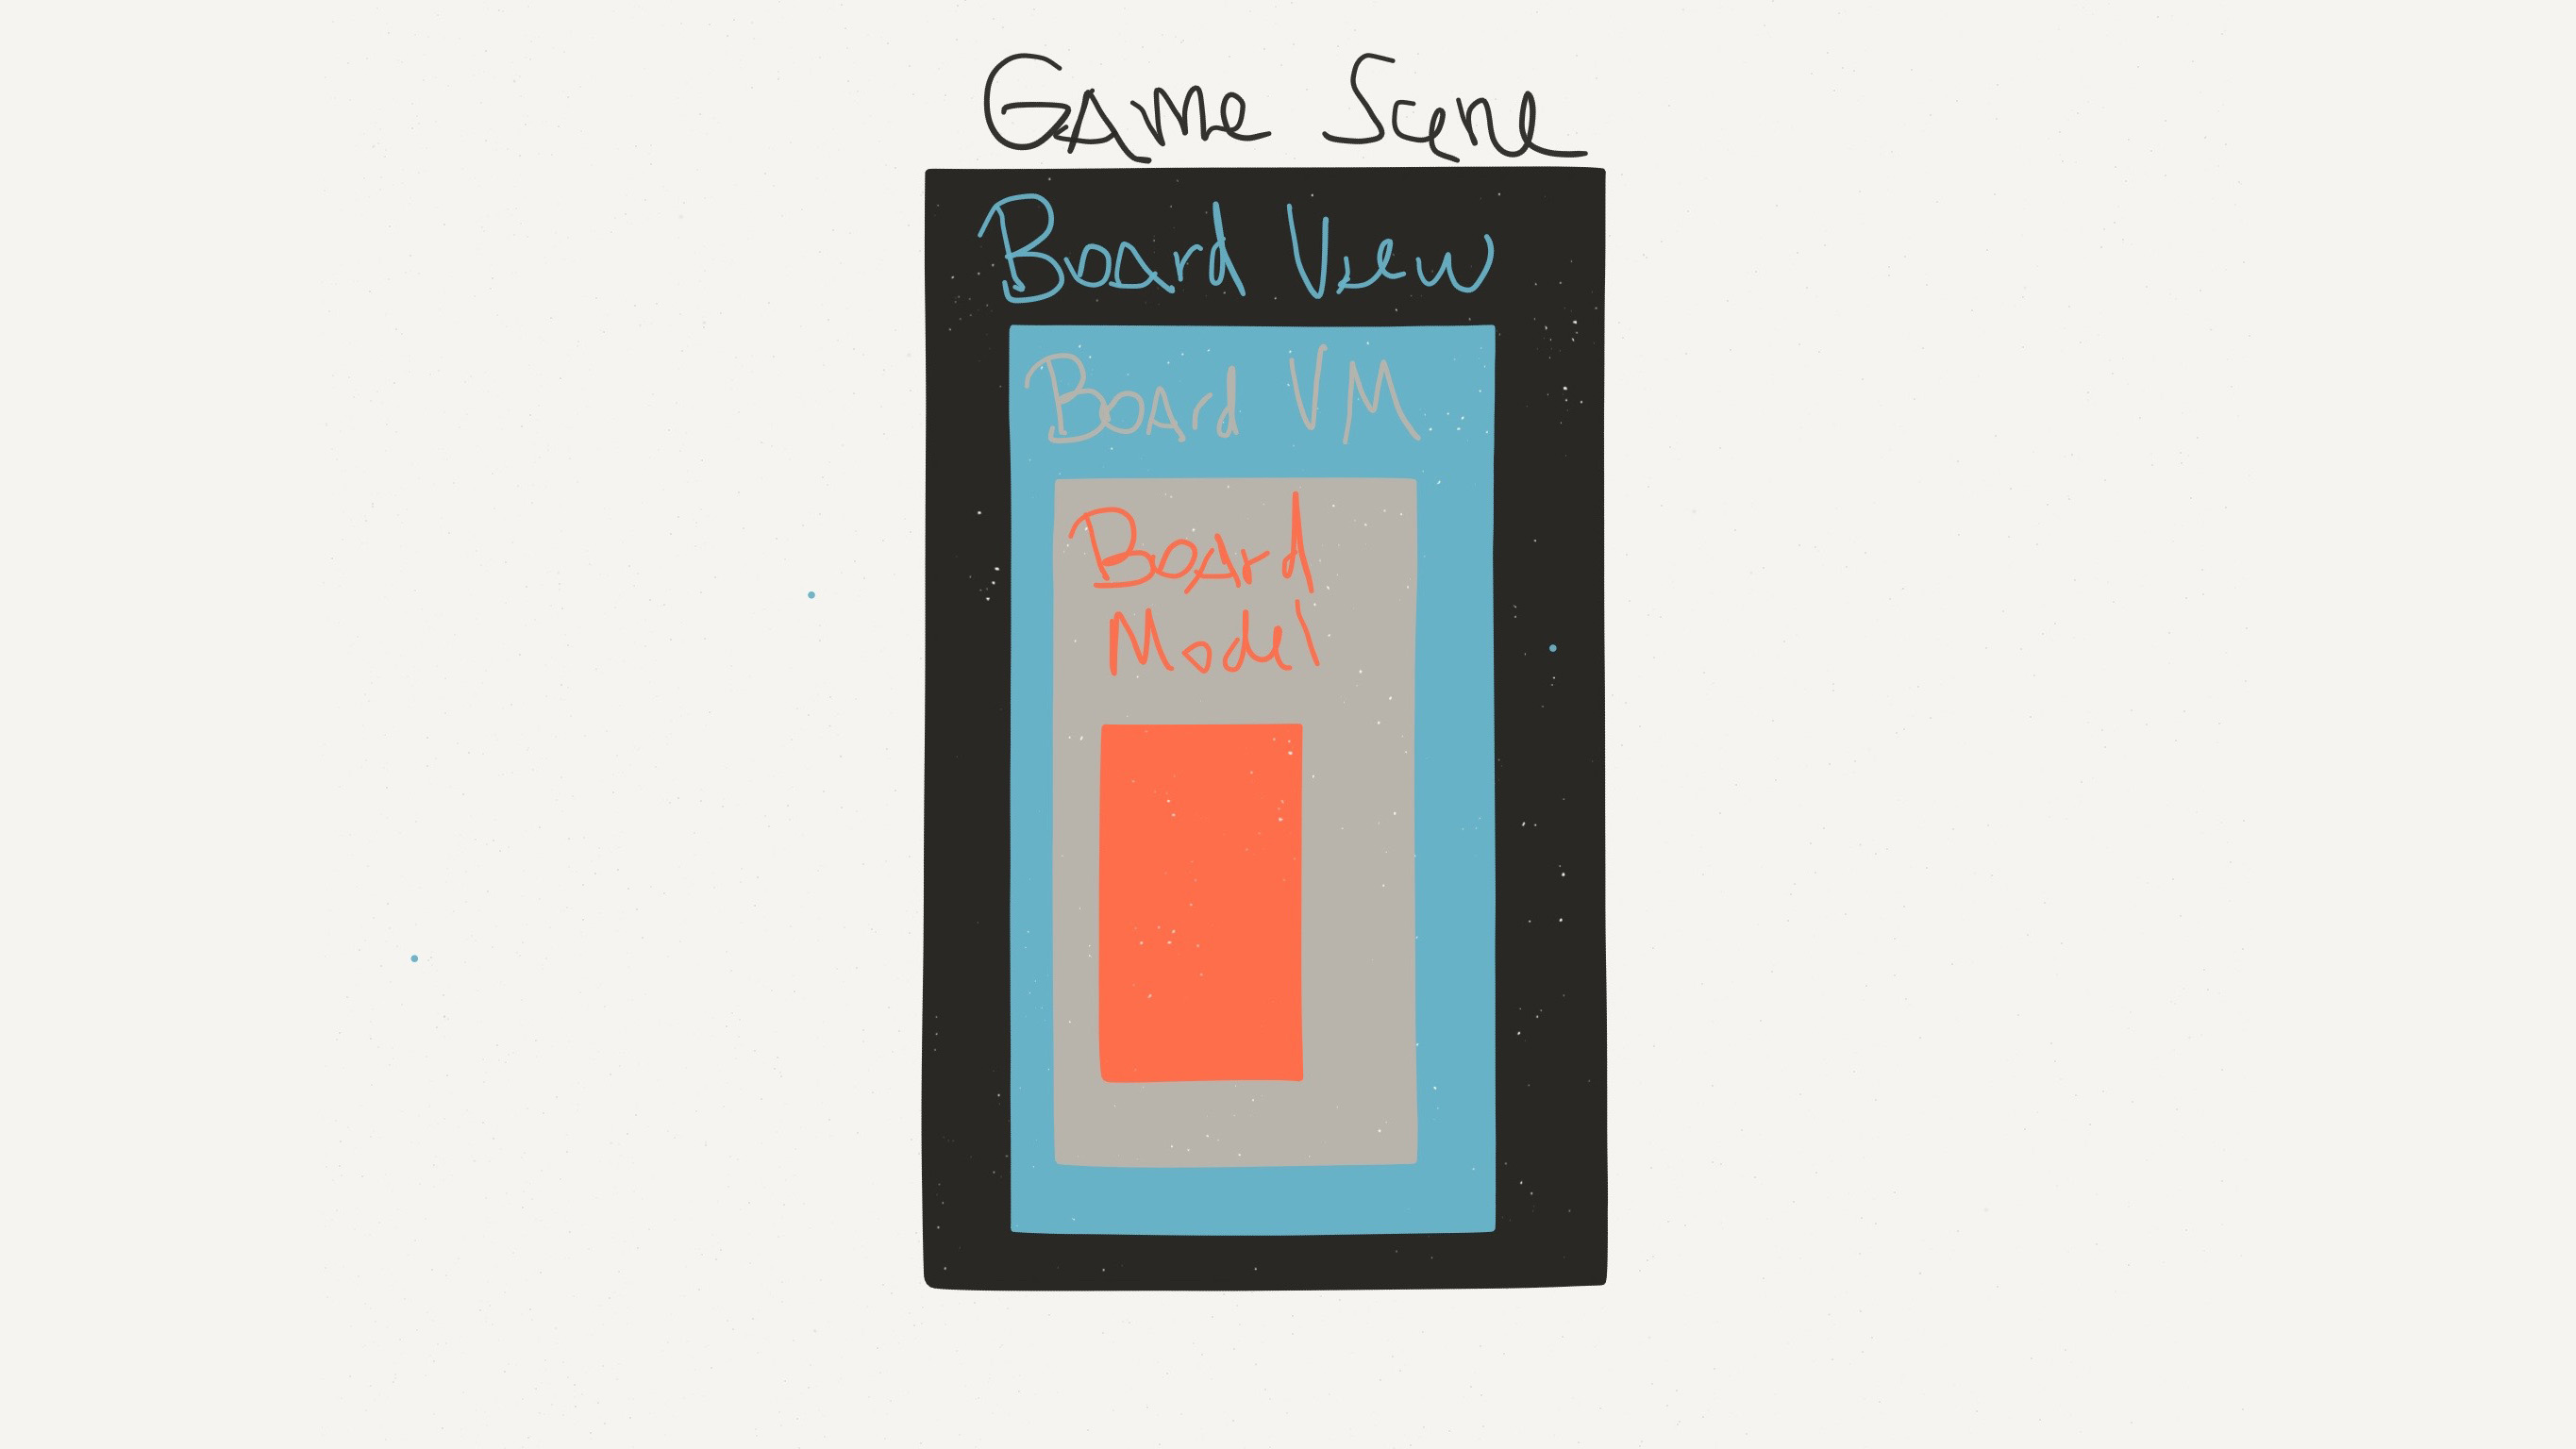 Game Scene
Board View
Board VM
Board
Model